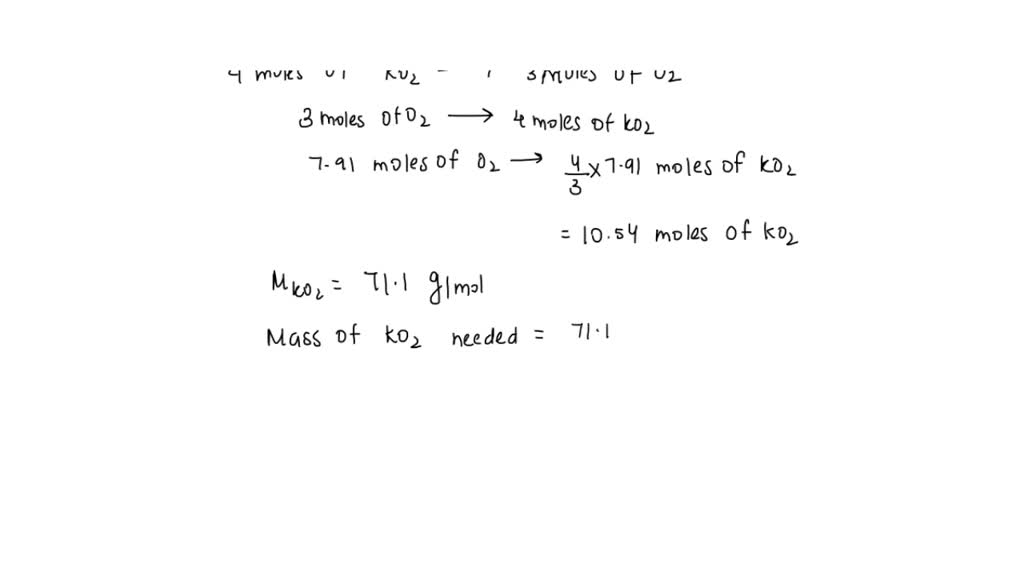 4 moles of KO2 3 moles of O2
3 moles of O2 → 4 moles of KO2
7.91 moles of O2 → 4/3 x 7.91 moles of KO2
= 10.54 moles of KO2
MKO2 = 71.1 g/mol
Mass of KO2 needed = 71.1